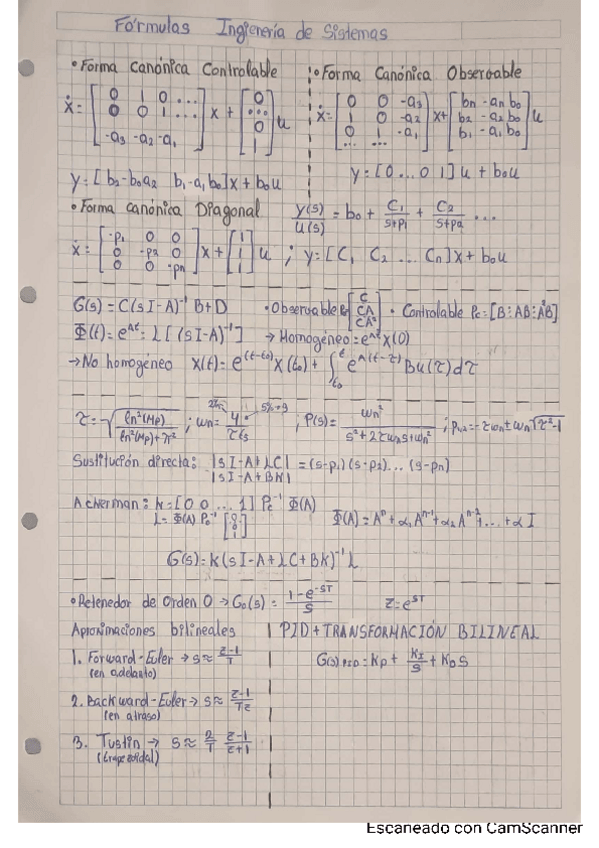 Fórmulas Ingienería de Sistemas
• Forma Canónica Controlable
ẋ = [0 1 0 ...; 0 0 1 ...; -a3 -a2 -a1] x + [0; ...; 0; 1] u
y = [b2-b0a2 b1-a1b0]x + b0u
• Forma Canónica Observable
ẋ = [0 0 -a3; 1 0 -a2; 0 1 -a1; ... ...] x + [bn - an b0; b2 - a2 b0; b1 - a1 b0] u
y = [0 ... 0 1] u + b0u
• Forma canónica Diagonal
y(s)/u(s) = b0 + C1/(s+p1) + C2/(s+p2) ...
ẋ = [-p1 0 0; 0 -p2 0; 0 0 -pn] x + [1; 1; 1] u ; y = [C1 C2 ... Cn]x + b0u
G(s) = C(sI-A)⁻¹ B+D • Observable [C; CA; CA²] • Controlable Pc = [B⋮AB⋮A²B]
Φ(t) = e^At = L[(sI-A)⁻¹] → Homogéneo = e^At x(0)
→ No homogéneo x(t) = e^(t-to) x(to) + ∫to^t e^A(t-τ) Bu(τ)dτ
τ = √(ln²(Mp)/(ln²(Mp)+π²)) ; wn = 4/(τts) ; P(s) = wn²/(s²+2τwns+wn²) ; p1,2 = -τwn ± wn√(τ²-1)
Sustitución directa: |sI-A+LC| = (s-p1)(s-p2)...(s-pn)
|sI-A+BK|
Ackerman: k = [0 0 ... 1] Pc⁻¹ Φ(A)
L = Φ(A) Po⁻¹ [0; 0; 1] Φ(A) = Aⁿ + α1Aⁿ⁻¹ + α2Aⁿ⁻² + ... + αI
G(s) = K(sI-A+LC+BK)⁻¹ L
• Retenedor de Orden 0 → Go(s) = (1-e^-sT)/s z = e^sT
Aproximaciones bilineales
1. Forward-Euler → s ≈ (z-1)/T
(en adelanto)
2. Backward-Euler → s ≈ (z-1)/(Tz)
(en atraso)
3. Tustin → s ≈ 2/T (z-1)/(z+1)
(trapezoidal)
PID + TRANSFORMACIÓN BILINEAL
G(s)PID = Kp + KI/s + KDS
Escaneado con CamScanner